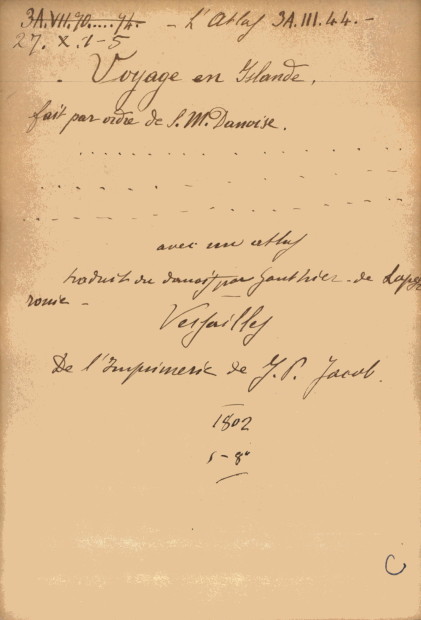 3A.VII.70.....74. - L'Atlas 3A.III.44.-
27. X. 1-5
Voyage en Islande,
fait par ordre de S. M. Danoise.
. . . . . . . . . . . . . .
. . . . . . . . . . . . . .
- - - - - - - - - - - - - -
avec un atlas
traduit du danois par Gauthier-de Lapey
ronie -
Versailles
De l'Imprimerie de J. P. Jacob.
1802
5-8°
C